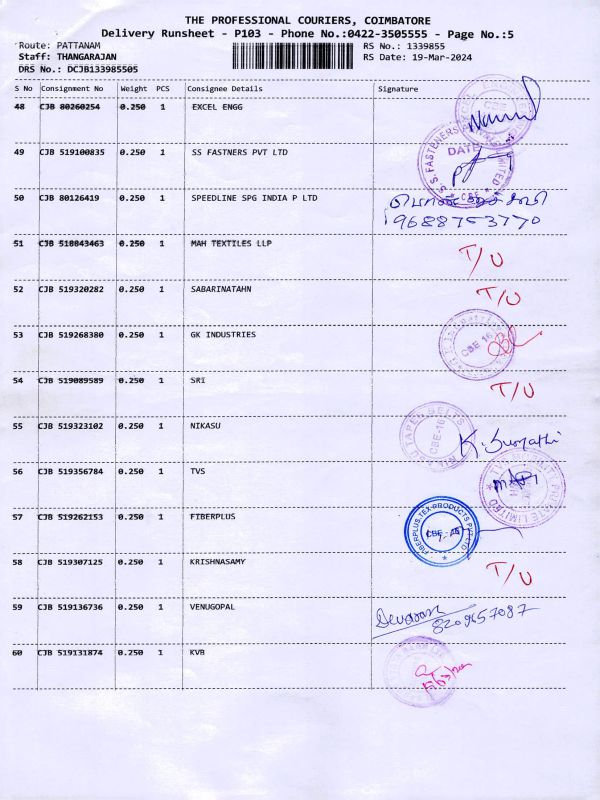 THE PROFESSIONAL COURIERS, COIMBATORE
Delivery Runsheet - P103 - Phone No.:0422-3505555 - Page No.:5
Route: PATTANAM RS No.: 1339855
Staff: THANGARAJAN RS Date: 19-Mar-2024
DRS No.: DCJB133985505
S No Consignment No Weight PCS Consignee Details Signature
48 CJB 80260254 0.250 1 EXCEL ENGG
49 CJB 519100835 0.250 1 SS FASTNERS PVT LTD
S.S. FASTENERS LIMITED DATE CBE
50 CJB 80126419 0.250 1 SPEEDLINE SPG INDIA P LTD
9688753770
51 CJB 518843463 0.250 1 MAH TEXTILES LLP T/U
52 CJB 519320282 0.250 1 SABARINATAHN T/U
53 CJB 519268380 0.250 1 GK INDUSTRIES
CBE 16
54 CJB 519089589 0.250 1 SRI T/U
55 CJB 519323102 0.250 1 NIKASU K. Sumathi
TAPES BELTS CBE-16
56 CJB 519356784 0.250 1 TVS
PRIVATE LIMITED
57 CJB 519262153 0.250 1 FIBERPLUS
FIBERPLUS TEX PRODUCTS PVT LTD
58 CJB 519307125 0.250 1 KRISHNASAMY T/U
59 CJB 519136736 0.250 1 VENUGOPAL
8209657087
60 CJB 519131874 0.250 1 KVB